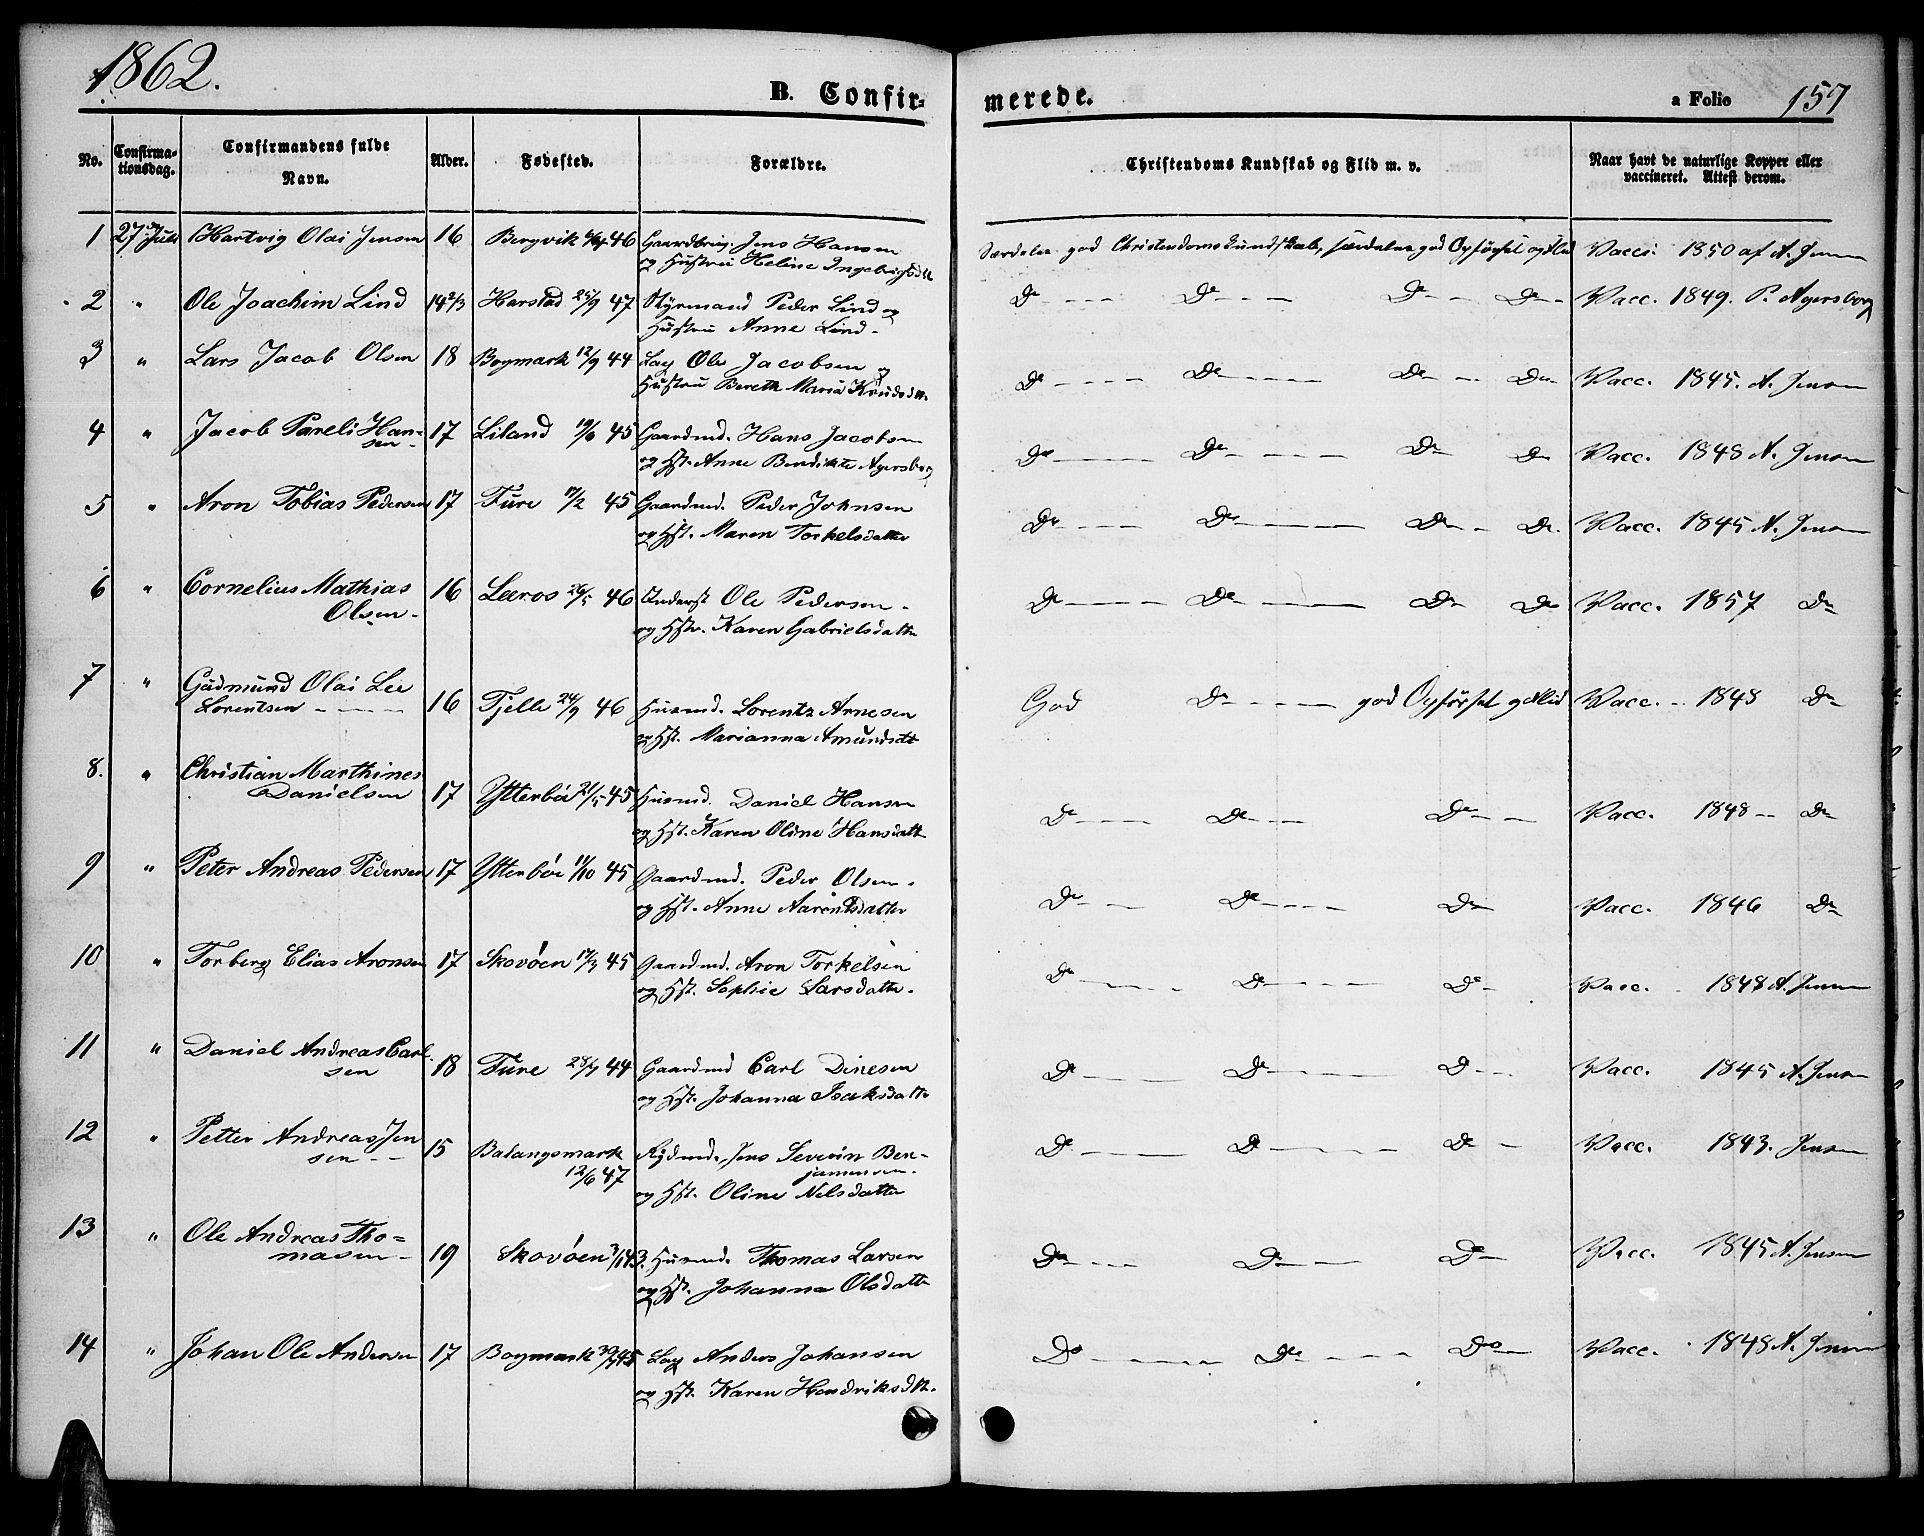 1862.
B. Confir-
merede.
a Folio 157
No.
Confirma-
tionsdag.
Confirmandens fulde
Navn.
Alder.
Fødested.
Forældre.
Christendoms Kundskab og Flid m. v.
Naar havt de naturlige Kopper eller
vaccineret. Attest derom.
1 27de Juli Hartvig Olai Jensen 16 Bergvik 46 Gaardbrug. Jens Hansen
og Hustru Heline Ingebrigtsdtt
Særdeles god Christendoms Kundskab, særdeles god Opførsel og Flid Vacci. 1850 af A. Jensen
2 " Ole Joachim Lind 14 2/3 Harstad 25/9 47 Styrmand Peder Lind og
Hustru Anne Lind.
Do Do Do Do Vacc. 1849. P. Agersborg
3 " Lars Jacob Olsen 18 Bogmark 12/9 44 Lap Ole Jacobsen og
Hustru Bereth Maria Knudsdtt.
Do Do Do Do Vacc. 1845. A. Jensen
4 " Jacob Pareli Han-
sen 17 Liland 19/6 45 Gaardmd. Hans Jacobsen
og Hst. Anne Bendikte Agersborg
Do Do Do Do Vacc. 1848 A. Jensen
5 " Aron Tobias Pedersen 17 Fure 17/2 45 Gaardmd. Peder Johnsen
og Hst. Maren Torkelsdatter
Do Do Do Do Vacc. 1845 A. Jensen
6 " Cornelius Mathias
Olsen 16 Leeros 26/5 46 Ole Pedersen
og Hstr. Karen Gabrielsdatte
Do Do Do Do Vacc. 1857 Do
7 " Gudmund Olai Lee
Lorentsen 16 Tjelle 24/9 46 Husmd. Lorentz Arnesen
og Hst. Marianna Amundsdtt
God Do god Opførsel og Flid Vacc. 1848 Do
8. " Christian Marthines
Danielsen 17 Ytterbøe 21/5 45 Husmd. Daniel Hansen
og Hst. Karen Oline Hansdatt
Do Do Do Vacc. 1848 Do
9 " Peter Andreas Pedersen 17 Ytterbøe 11/10 45 Gaardmd. Peder Olsen
og Hst. Anne Aarentsdatter
Do Do Do Vacc. 1846 Do
10 " Torberg Elias Aronsen 17 Skovøen 17/3 45 Gaardmd. Aron Torkelsen
og Hst. Sophie Larsdatte.
Do Do Do Vacc. 1848 A. Jensen
11 " Daniel Andreas Carl-
sen 18 Fure 28/7 44 Gaardmd Carl Dinesen
og Hst. Johanna Isaksdatte
Do Do Do Vacc. 1845 A. Jensen
12 " Petter Andreas Jen
sen 15 Balangsmark
12/6 47 Rydmd. Jens Severin Ben-
jaminsen.
og Hst. Oline Nilsdatter
Do Do Do Vacc. 1843. Jensen
13 " Ole Andreas Tho=
masen 19 Skovøen 3/1 43. Husmd. Thomas Larsen
og Hst. Johanna Olsdatte
Do Do Do Vacc. 1845 A. Jensen
14 " Johan Ole Andersen 17 Bogmark 45 Lap Anders Johansen
og Hst. Karen Hendriksdtt.
Do Do Do Vacc. 1848 A. Jensen